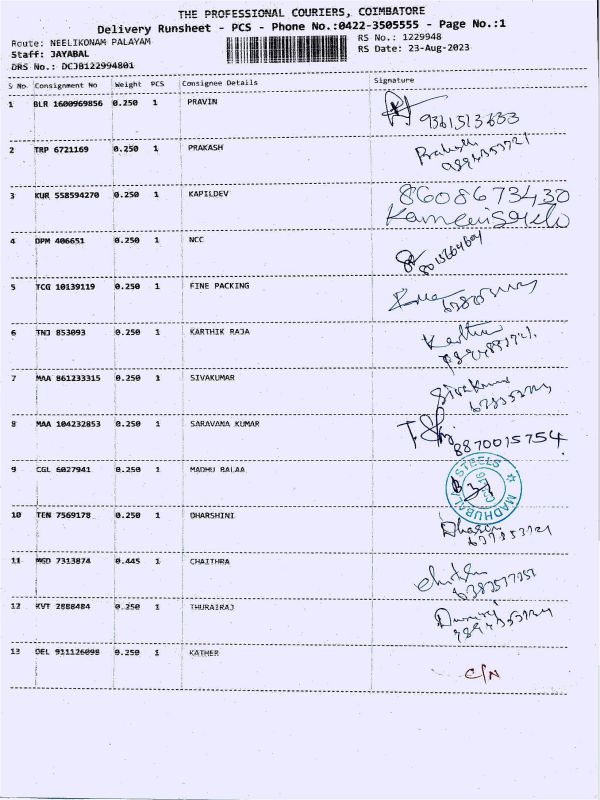 THE PROFESSIONAL COURIERS, COIMBATORE
Delivery Runsheet - PCS - Phone No.:0422-3505555 - Page No.:1
Route: NEELIKONAM PALAYAM RS No.: 1229948
Staff: JAYABAL RS Date: 23-Aug-2023
DRS No.: DCJB122994801
S No. Consignment No Weight PCS Consignee Details Signature
1 BLR 1600969856 0.250 1 PRAVIN
2 TRP 6721169 0.250 1 PRAKASH Prakash
3 KUR 558594270 0.250 1 KAPILDEV 8608673430
4 DPM 406651 0.250 1 NCC
5 TCG 10139119 0.250 1 FINE PACKING
6 TNJ 853093 0.250 1 KARTHIK RAJA
7 MAA 861233315 0.250 1 SIVAKUMAR Sivakumar
8 MAA 104232853 0.250 1 SARAVANA KUMAR 8870015754
9 CGL 6027941 0.250 1 MADHU BALAA STEELS MADHUBALA
10 TEN 7569178 0.250 1 DHARSHINI
11 MGD 7313874 0.445 1 CHAITHRA
12 KVT 2888484 0.250 1 THURAIRAJ
13 DEL 911126098 0.250 1 KATHER C/N